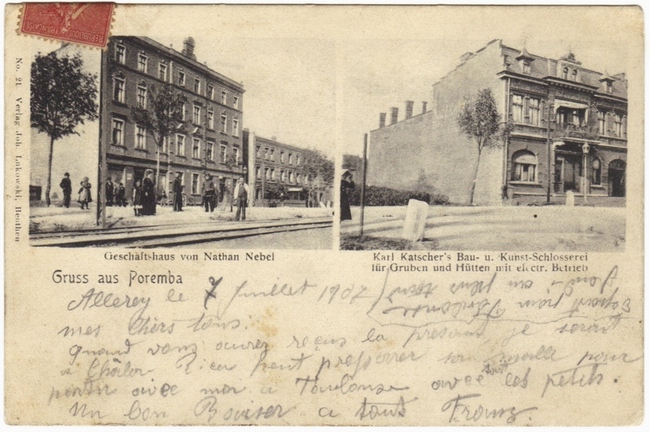 No. 21. Verlag Joh. Lukowski, Beuthen
Geschäftshaus von Nathan Nebel
Karl Katscher's Bau- u. Kunst-Schlosserei
für Gruben und Hütten mit electr. Betrieb
Gruss aus Poremba
Allerey le 7 Juillet 1907
mes chers tous.
quand vous aurez reçus la présente je serait
a Châlon Rien peut pour
partir avec moi a Toulouse avec les petits.
Un bon Baiser a tous Franz
au plus tard